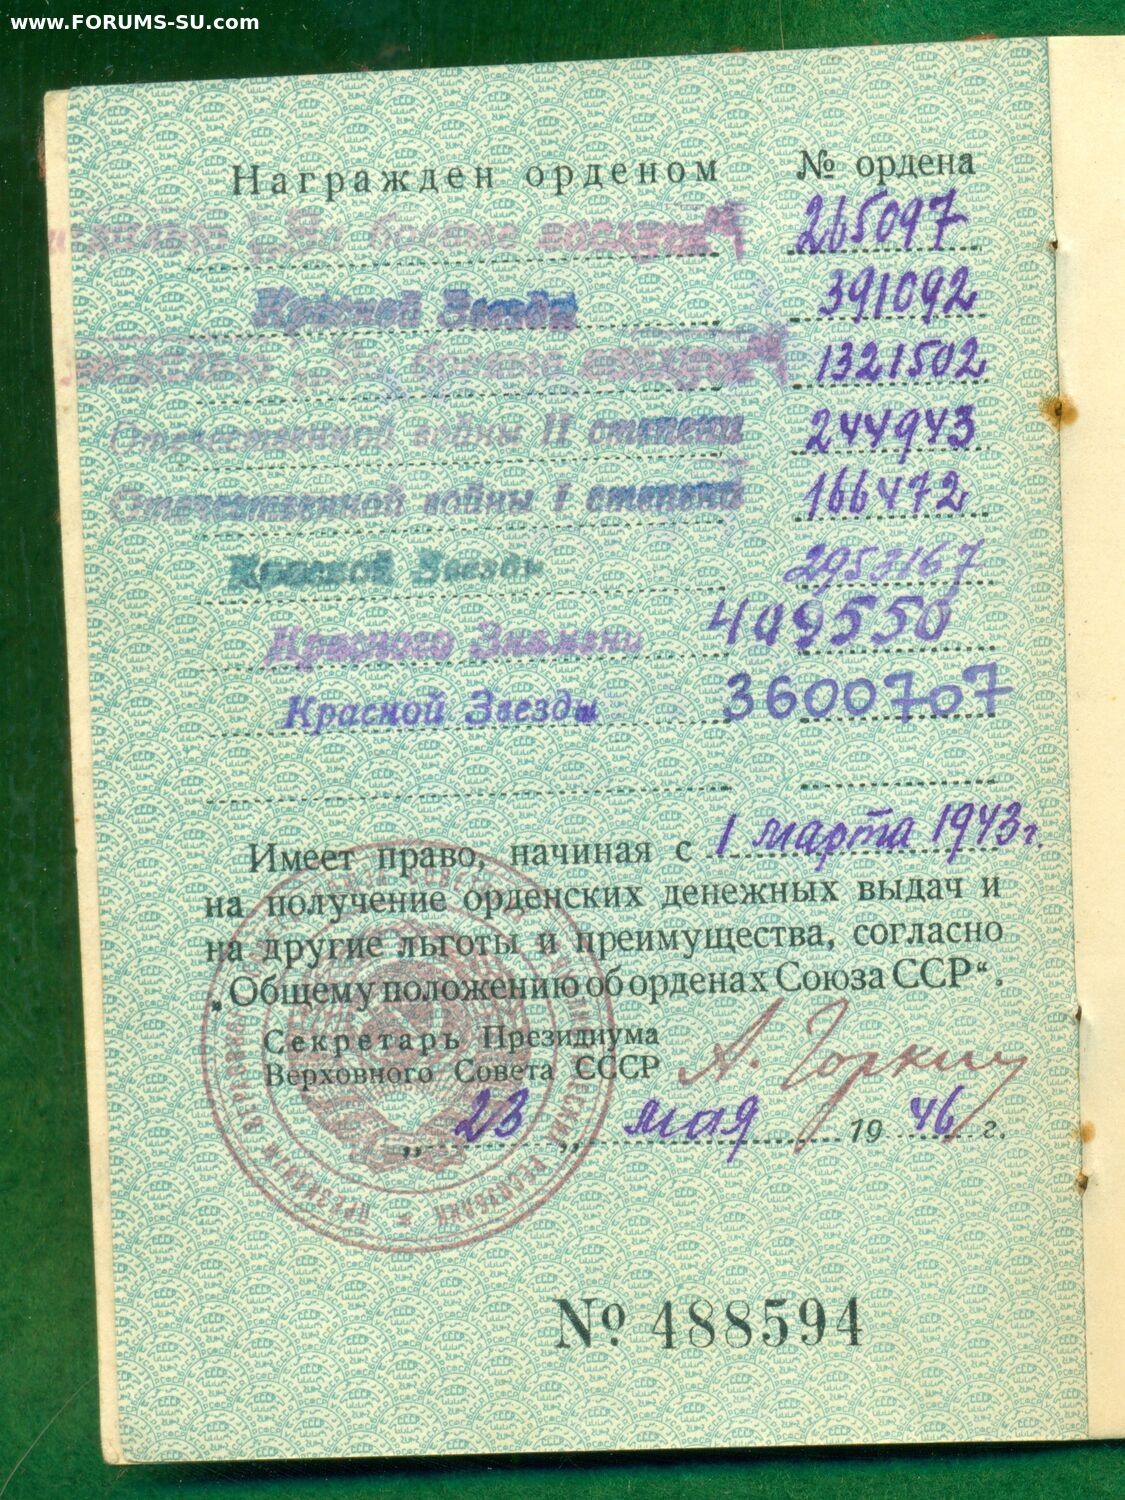 www.FORUMS-SU.com
Награжден орденом № ордена
265097
Красной Звезды 391092
1321502
Отечественной войны II степени 244943
Отечественной войны I степени 166472
Красной Звезды
Красного Знамени 409550
Красной Звезды 3600707
Имеет право, начиная с 1 марта 1943 г.
на получение орденских денежных выдач и
на другие льготы и преимущества, согласно
„Общему положению об орденах Союза ССР“.
Секретарь Президиума
Верховного Совета СССР А. Горкин
„ 23 „ мая 1946 г.
№ 488594